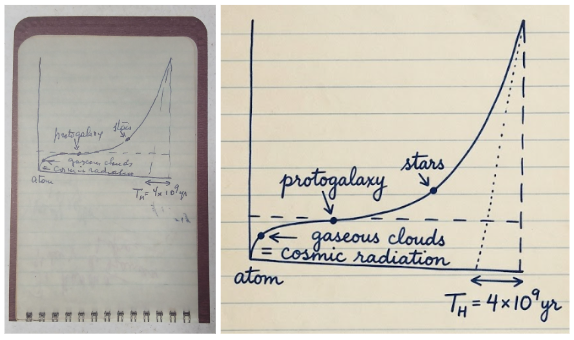 stars
protogalaxy
gaseous clouds
= cosmic radiation
atom
T_H = 4×10⁹ yr
stars
protogalaxy
gaseous clouds
= cosmic radiation
atom
T_H = 4×10⁹ yr